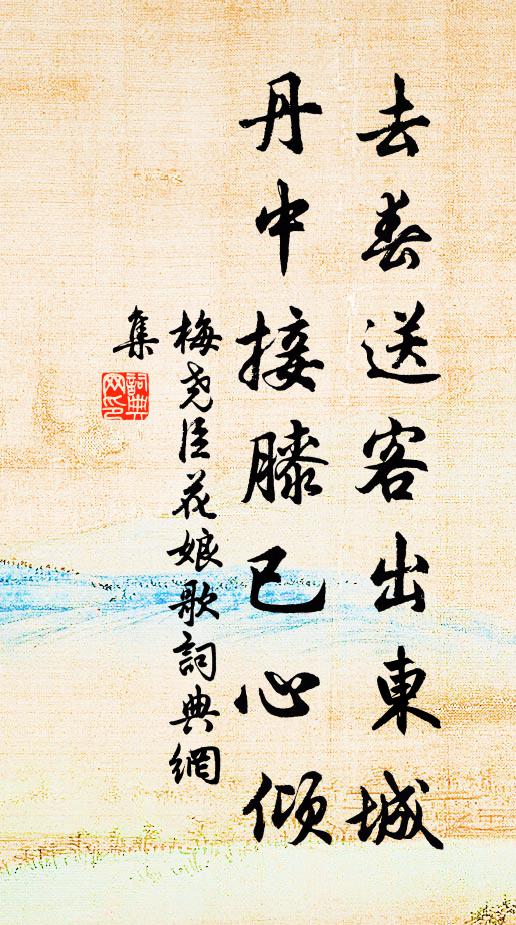 去春送客出東城
丹中接膝已心傾
梅尧臣花娘歌詞典網
集
詞典网印